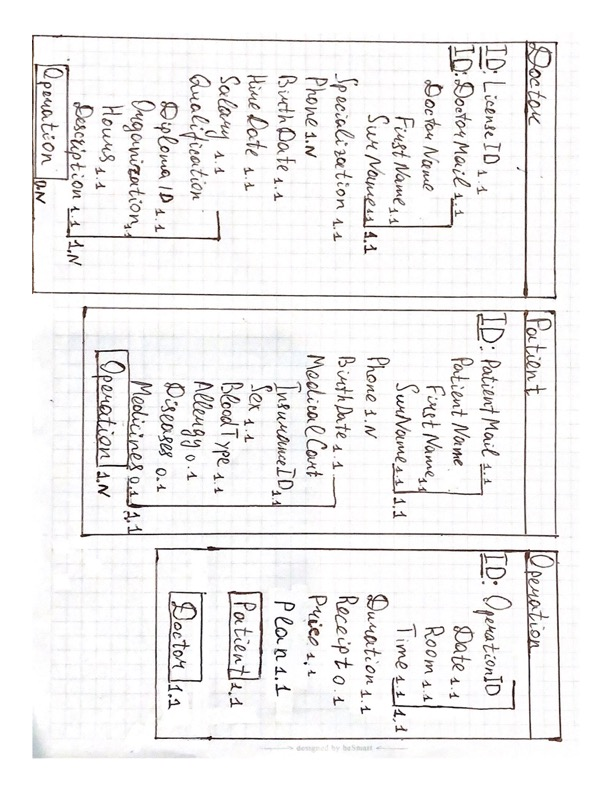 Doctor
ID: LicenseID 1.1
ID: DoctorMail 1.1
DoctorName
FirstName 1.1
SurName 1.1 1.1
Specialization 1.1
Phone 1.N
BirthDate 1.1
HireDate 1.1
Salary 1.1
Qualification
DiplomaID 1.1
Organization 1.1
Hours 1.1
Description 1.1 1.N
Operation 0.N
Patient
ID: PatientMail 1.1
Patient Name
First Name 1.1
SurName 1.1 1.1
Phone 1.N
BirthDate 1.1
MedicalCart
InsuranceID 1.1
Sex 1.1
BloodType 1.1
Allergy 0.1
Diseases 0.1
Medicines 0.1 1.1
Operation 1.N
Operation
ID: OperationID
Date 1.1
Room 1.1
Time 1.1 1.1
Duration 1.1
Receipt 0.1
Price 1.1
Plan 1.1
Patient 1.1
Doctor 1.1
designed by beSmart